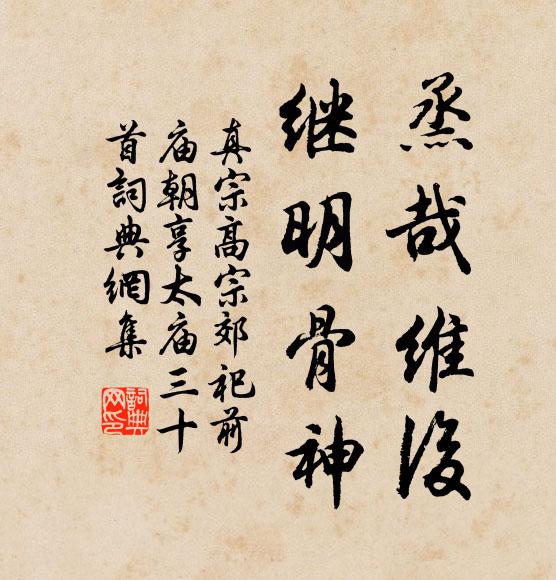 烝哉维後
继明骨神
真宗高宗郊祀前
庙朝享太庙三十
首詞典網集
詞典网印